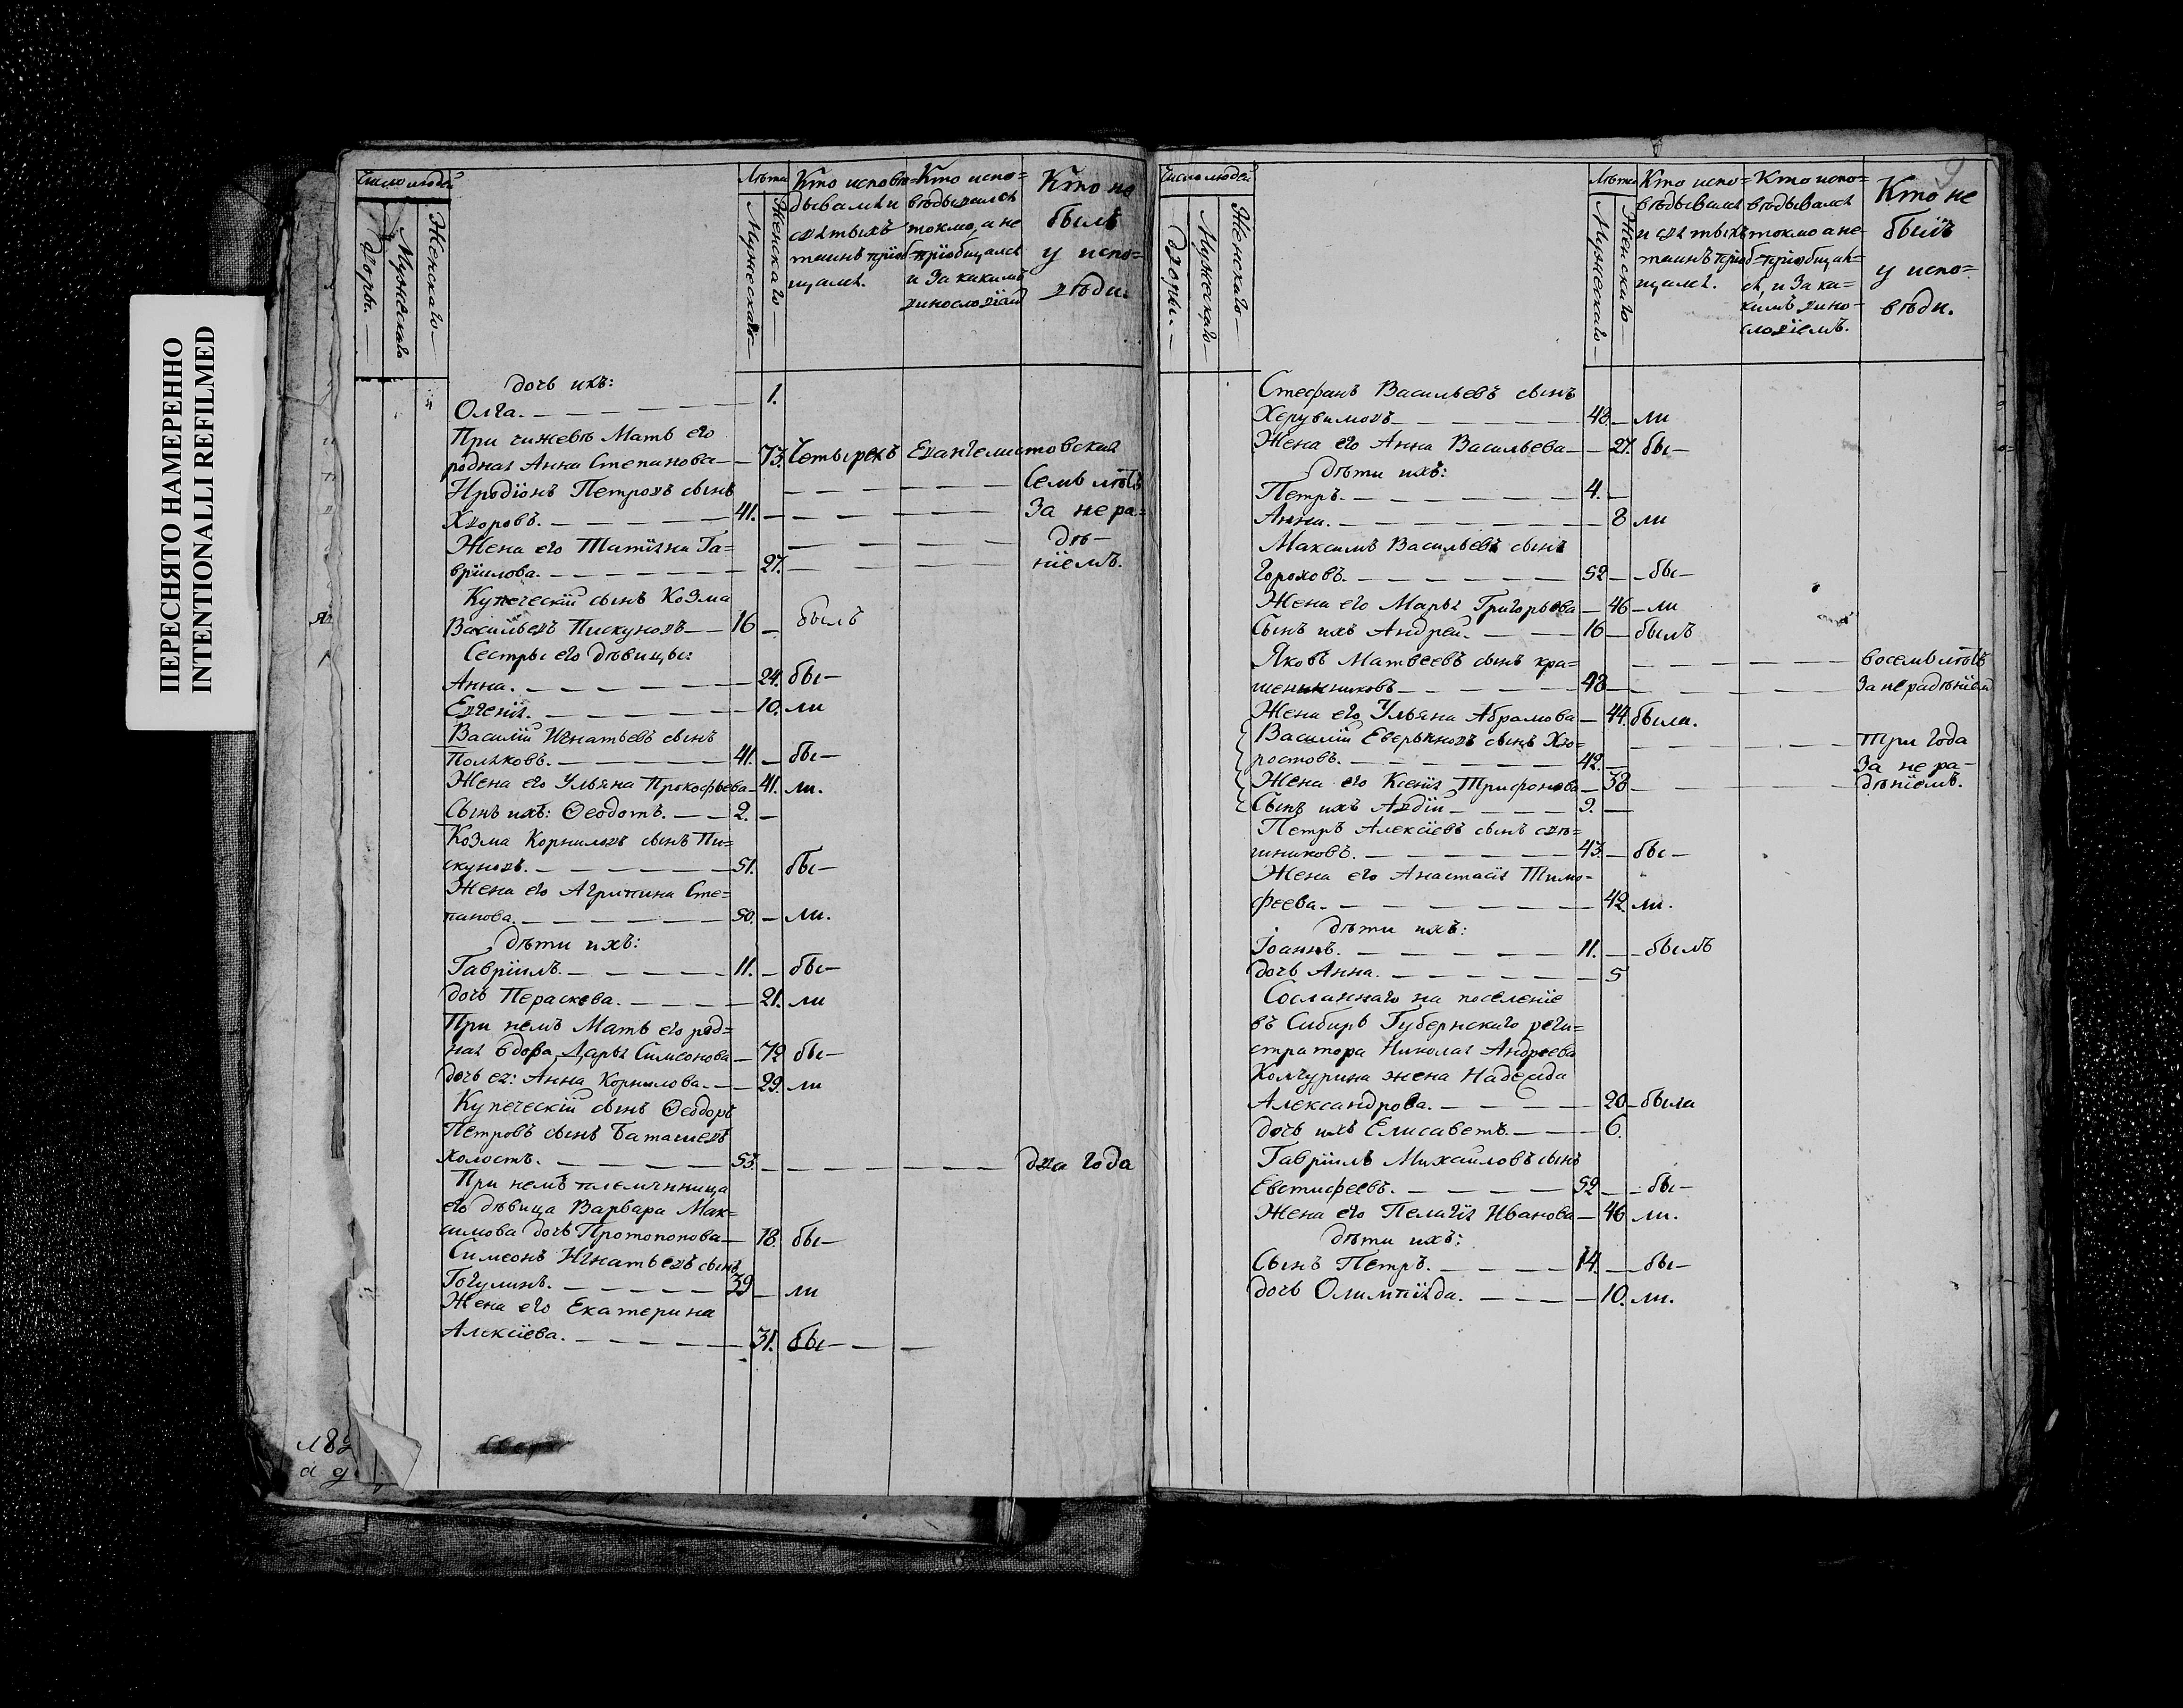 ПЕРЕСНЯТО НАМЕРЕННО
INTENTIONALLI REFILMED
Число людей
Дворы.
Мужескаго
Женскаго
Лѣта
Мужескаго
Женскаго
Кто исповѣ-
дывался и
святыхъ
таинъ приоб-
щался.
Кто испо=
вѣдывался
токмо, а не
приобщался
и за какимъ
винословїем
Кто не
былъ
у испо=
вѣди.
дочь ихъ:
Олга. 1.
При чижевѣ Мать его
родная Анна Степанова 73. Четырехъ Евангелистовская
Иродїонъ Петровъ сынъ Семь лѣтъ
Хворовъ. 41. За нера=
Жена его Татїяна Га= дѣ-
врїилова. 27. нїемъ.
Купеческїй сынъ Козма
Васильевъ Пискуновъ 16 былъ
Сестры его дѣвицы:
Анна. 24. бы-
Евгенїя. 10. ли
Василїй Игнатьевъ сынъ
Поляковъ. 41. бы-
Жена его Ульяна Прокофьева 41. ли.
Сынъ ихъ: Ѳеодотъ. 2.
Козма Корниловъ сынъ Пи=
скуновъ. 51. бы-
Жена его Агрипина Сте=
панова. 50. ли.
дѣти ихъ:
Гаврїилъ. 11. бы-
дочь Пераскева. 21. ли
При немъ Мать его род=
ная вдова Дарья Симеонова 72 бы-
дочь ея: Анна Корнилова. 29. ли
Купеческїй сынъ Ѳеодоръ
Петровъ сынъ Баташевъ
холостъ. 53. два года
При немъ племянница
его дѣвица Варвара Мак=
симова дочь Протопопова 18. бы-
Симеонъ Игнатьевъ сынъ
Гогулинъ. 39 ли
Жена его Екатерина
Алексїева. 31. бы-
Число людей
Дворы.
Мужескаго
Женскаго
Лѣта
Мужескаго
Женскаго
Кто испо=
вѣдывался
и святыхъ
таинъ приоб-
щался.
Кто испо=
вѣдывался
токмо а не
приобщал-
ся, и за ка=
кимъ вино-
словїемъ.
Кто не
былъ
у испо=
вѣди.
9
Стефанъ Васильевъ сынъ
Херувимовъ 48 ли
Жена его Анна Васильева 27. бы-
дѣти ихъ:
Петръ. 4.
Анна. 8 ли
Максимъ Васильевъ сынъ
Гороховъ. 52 бы-
Жена его Марья Григорьева 46 ли
Сынъ ихъ Андрей. 16 былъ
Яковъ Матвеевъ сынъ кра= восемь лѣтъ
шенинниковъ 48 За нерадѣнїем
Жена его Ульяна Абрамова 44. была.
Василїй Еверьяновъ сынъ Хво= три года
ростовъ. 42. За не ра-
Жена его Ксенїя Трифонова 38 дѣнїемъ.
Сынъ ихъ Авдїй 9.
Петръ Алексїевъ сынъ свѣ=
чниковъ. 43. бы-
Жена его Анастасїя Тимо-
феева. 42. ли.
дѣти ихъ:
Іоаннъ. 11. былъ
дочь Анна. 5
Сосланнаго на поселенїе
въ Сибирь Губернскаго реги=
стратора Николая Андреева
Колчурина жена Надежда
Александрова. 20 была
дочь ихъ Елисаветъ. 6.
Гаврїилъ Михайловъ сынъ
Евстифеевъ. 52 бы-
Жена его Пелагїя Иванова 46 ли.
дѣти ихъ:
Сынъ Петръ. 14. бы-
дочь Олимпїяда. 10. ли.